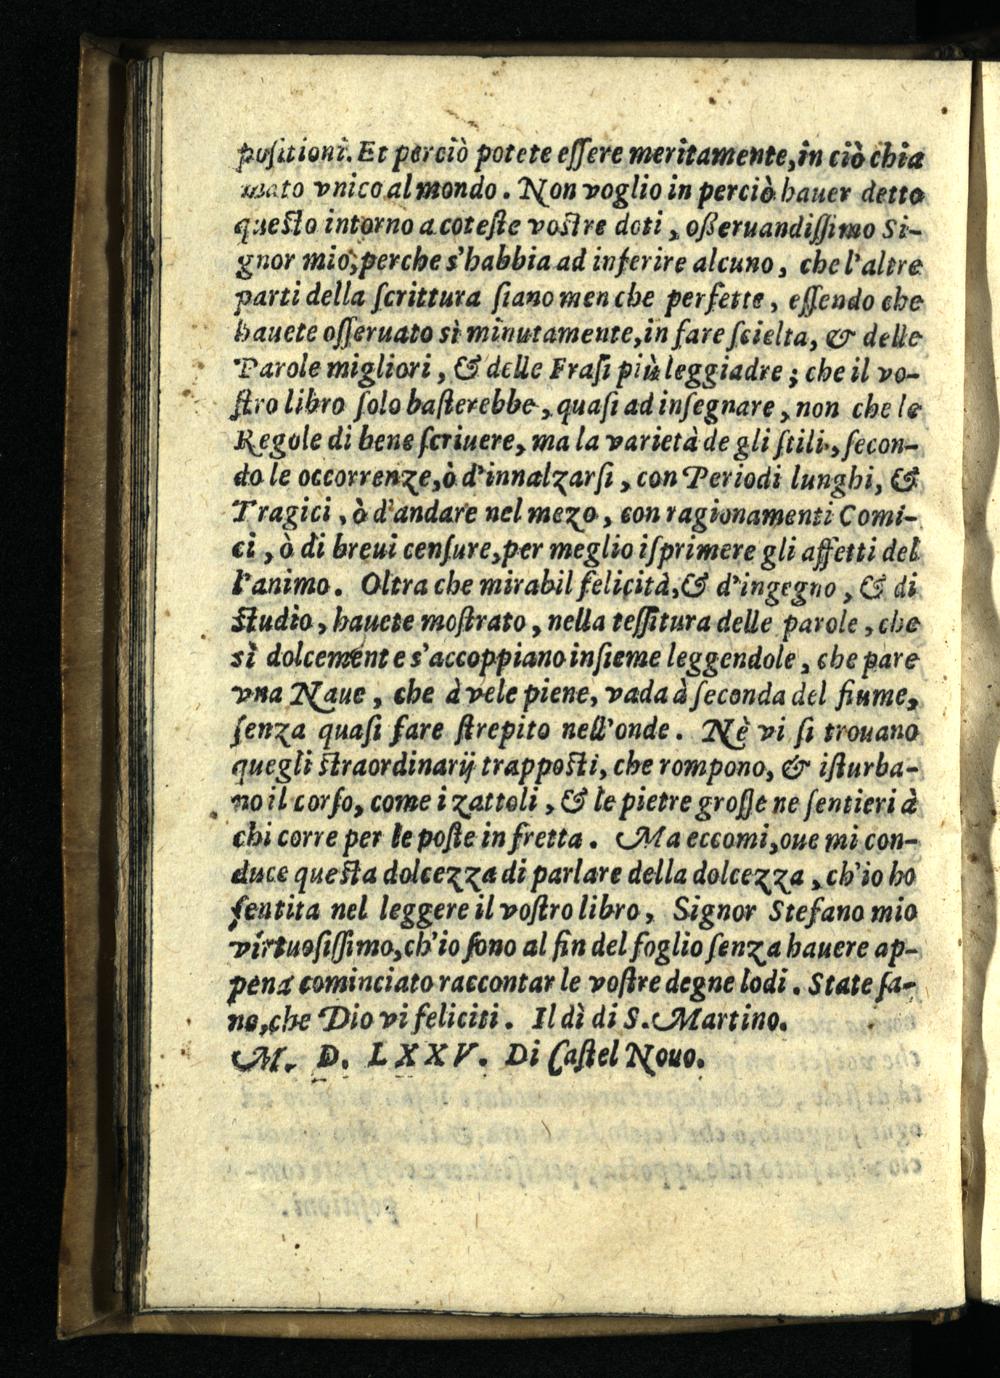 positioni. Et perciò potete essere meritamente, in ciò chia
mato vnico al mondo. Non voglio in perciò hauer detto
questo intorno a coteste vostre doti, osseruandissimo Si-
gnor mio, perche s'habbia ad inferire alcuno, che l'altre
parti della scrittura siano men che perfette, essendo che
hauete osseruato sì minutamente, in fare scielta, & delle
Parole migliori, & delle Frasi più leggiadre; che il vo-
stro libro solo basterebbe, quasi ad insegnare, non che le
Regole di bene scriuere, ma la varietà de gli stili, secon-
do le occorrenze, ò d'innalzarsi, con Periodi lunghi, &
Tragici, ò d'andare nel mezo, con ragionamenti Comi-
ci, ò di breui censure, per meglio isprimere gli affetti del
l'animo. Oltra che mirabil felicità, & d'ingegno, & di
studio, hauete mostrato, nella tessitura delle parole, che
sì dolcemente s'accoppiano insieme leggendole, che pare
vna Naue, che à vele piene, vada à seconda del fiume,
senza quasi fare strepito nell'onde. Nè vi si trouano
quegli straordinarij trapposti, che rompono, & isturba-
no il corso, come i zattoli, & le pietre grosse ne sentieri à
chi corre per le poste in fretta. Ma eccomi, oue mi con-
duce questa dolcezza di parlare della dolcezza, ch'io ho
sentita nel leggere il vostro libro, Signor Stefano mio
virtuosissimo, ch'io sono al fin del foglio senza hauere ap-
pena cominciato raccontar le vostre degne lodi. State sa-
no, che Dio vi feliciti. Il dì di S. Martino.
M. D. LXXV. Di Castel Nouo.